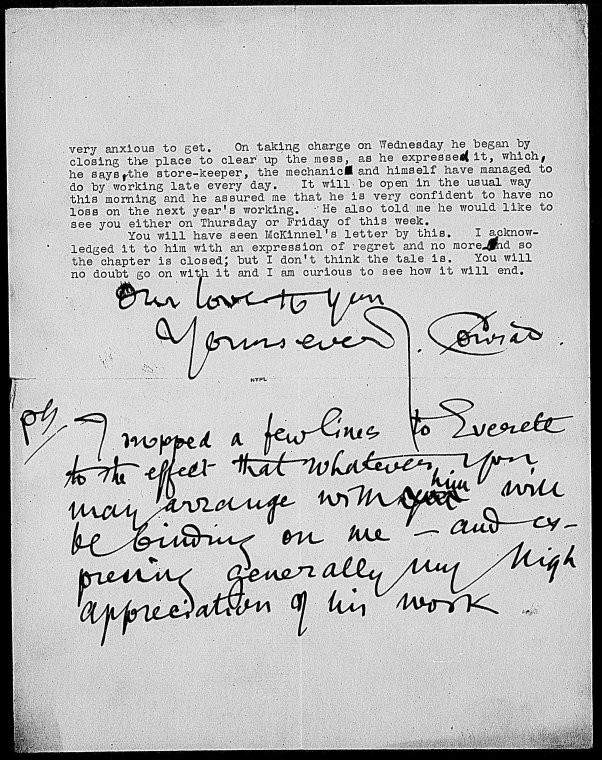 very anxious to get. On taking charge on Wednesday he began by
closing the place to clear up the mess, as he expressed it, which,
he says, the store-keeper, the mechanic and himself have managed to
do by working late every day. It will be open in the usual way
this morning and he assured me that he is very confident to have no
loss on the next year's working. He also told me he would like to
see you either on Thursday or Friday of this week.
You will have seen McKinnel's letter by this. I acknow-
ledged it to him with an expression of regret and no more and so
the chapter is closed; but I don't think the tale is. You will
no doubt go on with it and I am curious to see how it will end.
Our love to you
Yours ever
J. Conrad.
NYPL
PS. I dropped a few lines to Everett
to the effect that whatever you
may arrange with him will
be binding on me — and ex-
pressing generally my high
appreciation of his work